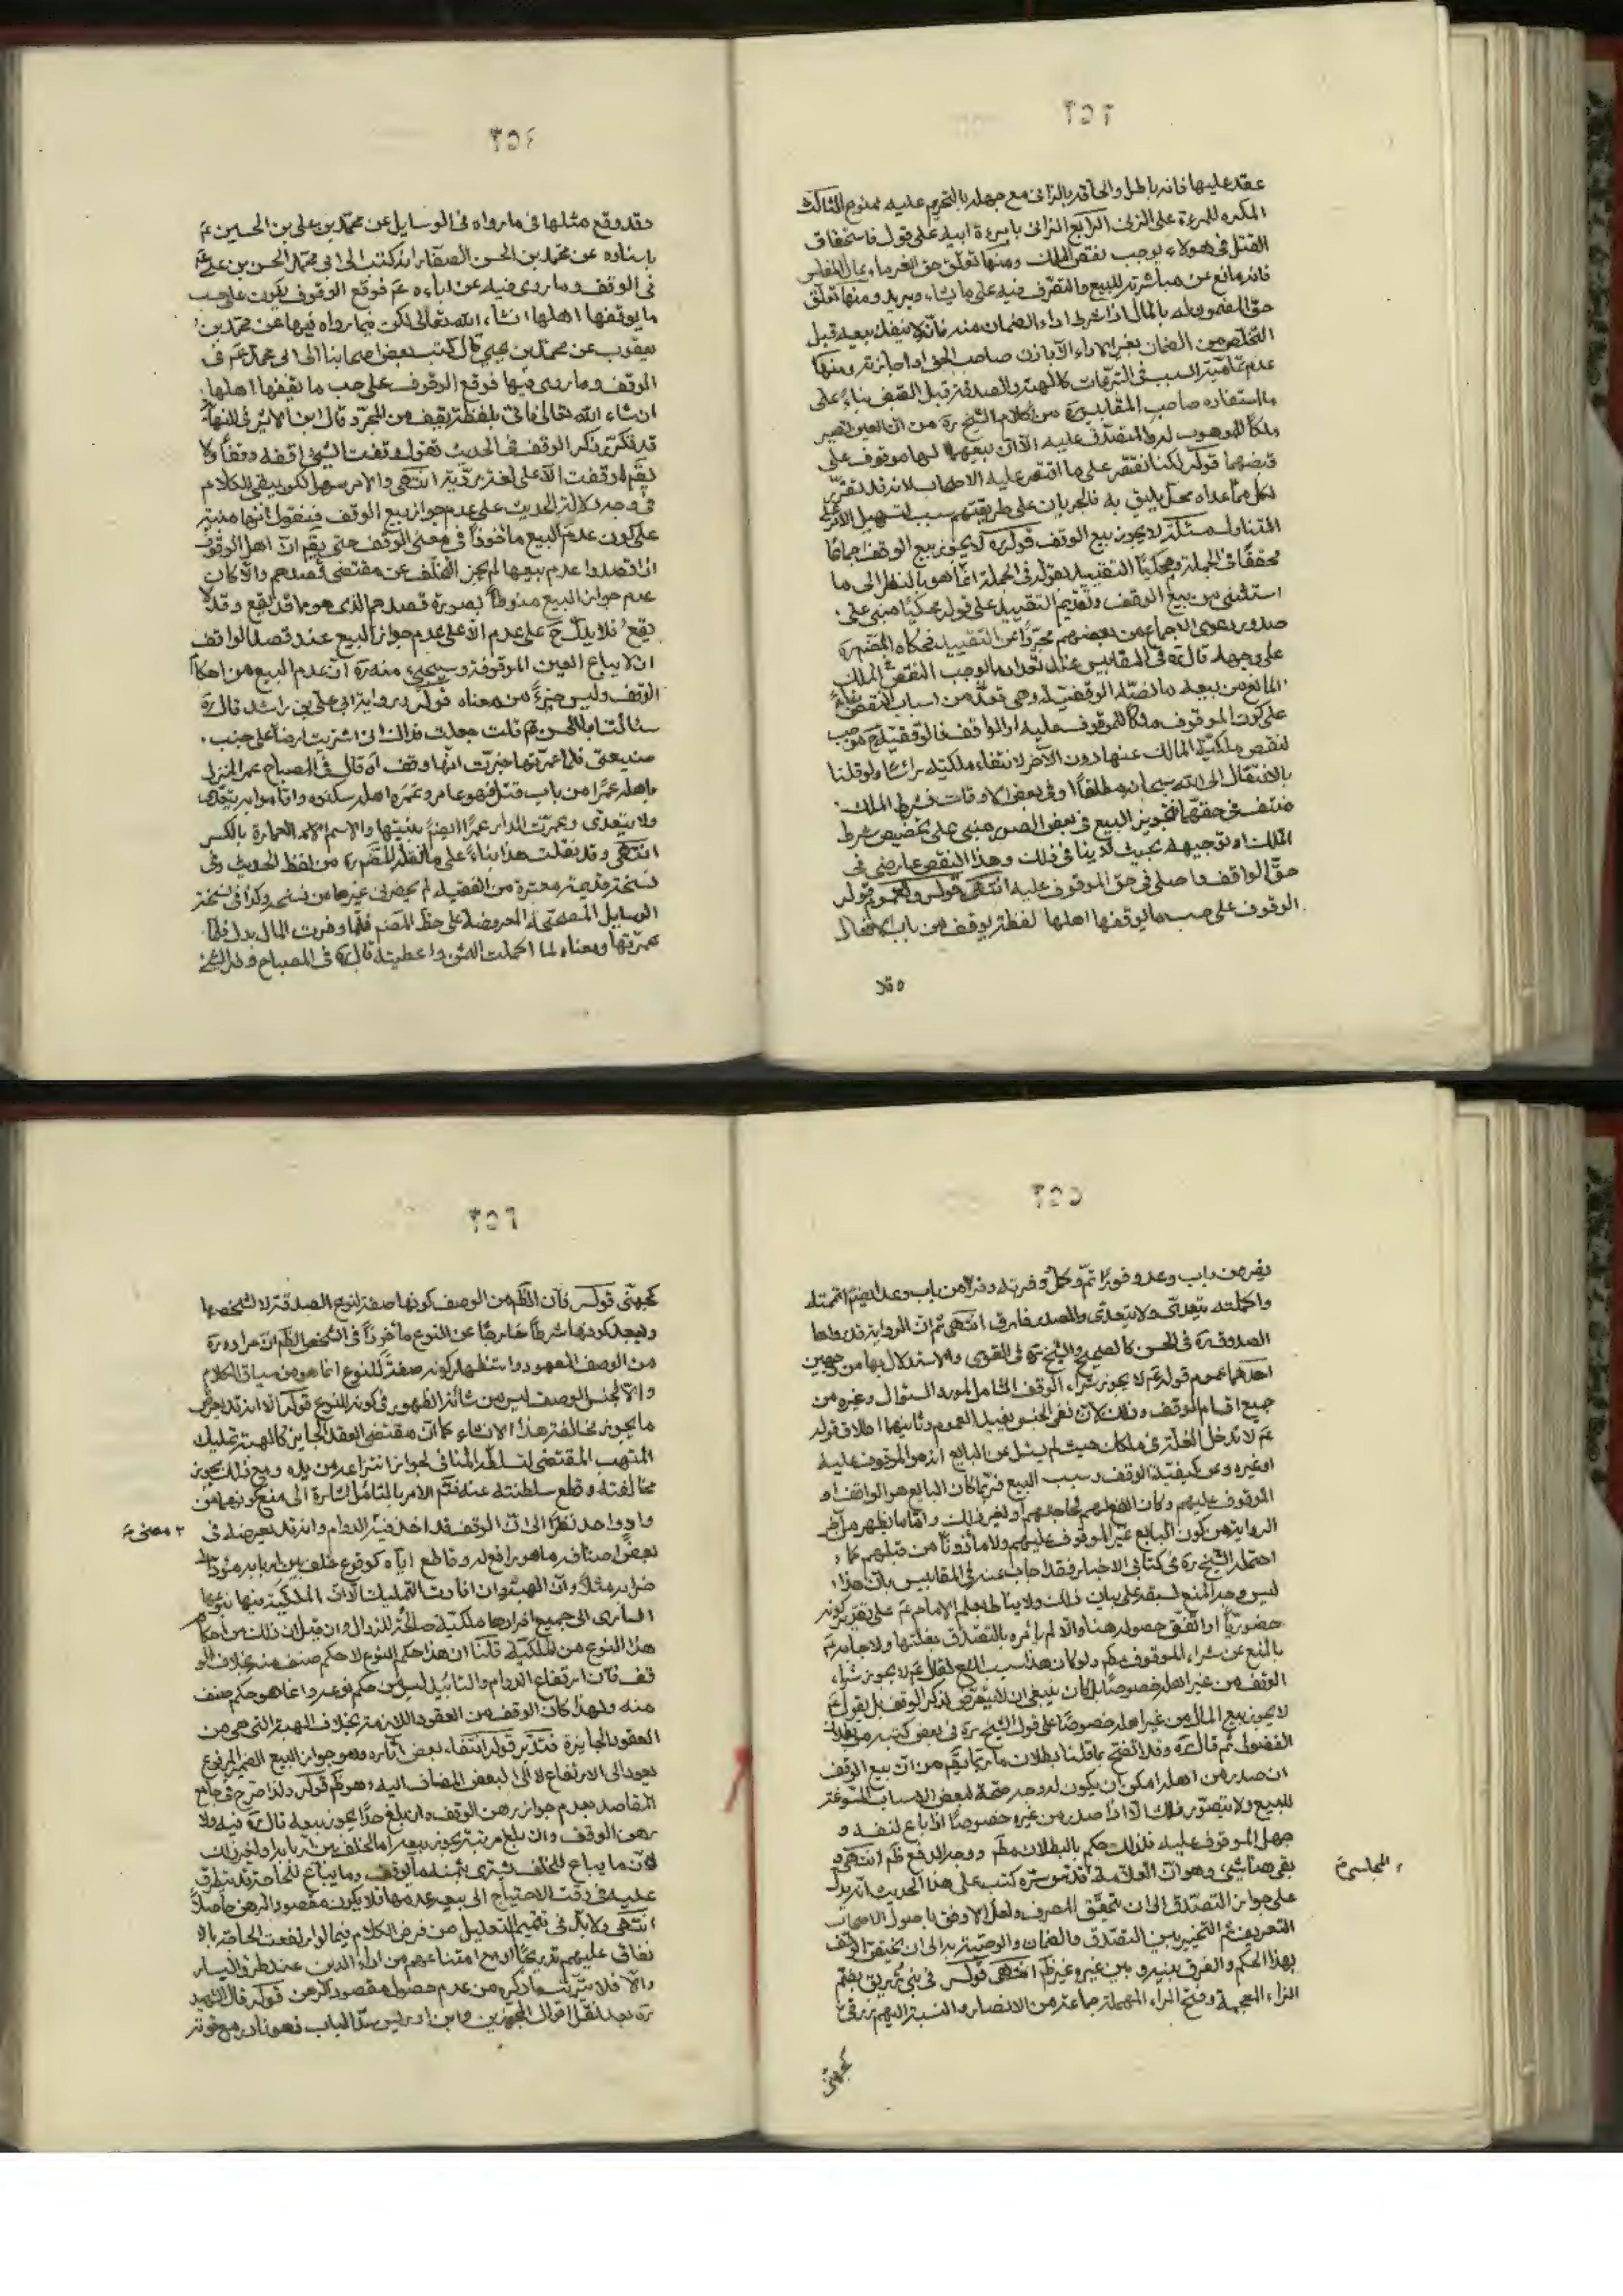 ٢٥٣
عقد عليها فانه باطل والحاقه بالزانى مع جهله بالتحريم عليه ممنوع الثالث
المكره للمرءة على الزنى الرابع الزانى بامرءة ابيه على قول فاستحقاق
القتل فى هولاء يوجب نقص الملك ومنها تعلق حق الغرماء بمال المفلس
فانه مانع عن مباشرته للبيع والتصرف فيه على ما يشاء ويريد ومنها تعلق
حق المضمون له بالمال اذا شرط اداء الضمان منه فانه لا ينفذ بيعه قبل
التخلص من الضمان بغير الاداء الا باذن صاحب الحق او اجازته ومنها
عدم تمامية السبب فى التبرعات كالهبة والصدقة قبل القبض بناء على
ما استفاده صاحب المقابيس ره من كلام الشيخ ره من ان العين تصير
ملكا للموهوب له والمتصدق عليه الا ان بيعهما لها موقوف على
قبضهما قوله لكنا نقتصر على ما اقتصر عليه الاصحاب لانه قد تقرر
لكل مما عداه محل يليق به فالجريان على طريقتهم سبب لتسهيل الامر على
المتناول مسئلة لا يجوز بيع الوقف قوله لا يجوز بيع الوقف اجماعا
محققا فى الجملة ومحكيا التقييد بقوله فى الجملة انما هو بالنظر الى ما
استثنى من بيع الوقف وتقديم التقييد على قوله محكيا مبنى على
صدور دعوى الاجماع من بعضهم مجردا عن التقييد فحكاه المصنف ره
على وجهه قال فى المقابيس عند تعداد ما يوجب النقص فى الملك
المانع من بيعه ما نصه الوقفية وهى تعد من اسباب النقص بناء
على كون الموقوف ملكا للموقوف عليه او الواقف فالوقفية موجب
لنقص ملكية المالك عنها دون الآخر لانتفاء ملكيته رأسا ولو قلنا
بالانتقال الى الله سبحانه مطلقا او فى بعض الاوقات فشرط الملك
منتف فى حقهما فتجويز البيع فى بعض الصور مبنى على تخصيص شرط
الملك او توجيهه بحيث لا ينافى ذلك وهذا النقص عارضى فى
حق الواقف واصلى فى حق الموقوف عليه انتهى قوله ولعموم قوله
الوقوف على حسب ما يوقفها اهلها لفظة يوقف من باب الافعال
وقد
٢٥٤
وقد وقع مثلها فى ما رواه فى الوسايل عن محمد بن على بن الحسين ع
باسناده عن محمد بن الحسن الصفار انه كتب الى ابى محمد الحسن بن على ع
فى الوقف وما روى فيه عن اباءه ع فوقع الوقوف يكون على حسب
ما يوقفها اهلها انشاء الله تعالى لكن فيما رواه فيها عن محمد بن
يعقوب عن محمد بن يحيى قال كتب بعض اصحابنا الى ابى محمد ع فى
الوقف وما روى فيها فوقع الوقوف على حسب ما يقفها اهلها
ان شاء الله تعالى فاتى بلفظة يقف من المجرد قال ابن الاثير فى النهاية
قد تكرر ذكر الوقف فى الحديث تقول وقفت الشئ اقفه وقفا ولا
يقم اوقفت الا على لغة رديّة انتهى والامر سهل لكن يبقى الكلام
فى وجه دلالة الحديث على عدم جواز بيع الوقف فنقول انها مبنية
على كون عدم البيع ماخوذا فى معنى الوقف حتى يقم ان اهل الوقوف
اذا قصدوا عدم بيعها لم يجز التخلف عن مقتضى قصدهم والا كان
عدم جواز البيع منوطا بصورة قصدهم الذى هو ما قد يقع وقد لا
يقع فلا يدل ح على عدم الا على عدم جواز البيع عند قصد الواقف
ان لا يباع العين الموقوفة وسيجئ منه ره ان عدم البيع من احكام
الوقف وليس جزءً من معناه قوله ورواية ابى على بن راشد قال
سئالت ابا الحسن ع قلت جعلت فداك انى اشتريت ارضا على جنب
ضيعتى فلما عمرتها خبرت انها وقف اه قال فى المصباح عمر المنزل
باهله عمرا من باب قتل فهو عامر وعمره اهله سكنوه واقاموا به يتعدى
ولا يتعدى وعمرت الدار عمرا ايضا بنيتها والاسم العمارة بالكسر
انتهى وقد نقلت هذا بناء على ما نقله المصنف ره من لفظ الحديث وفى
نسخة قديمة معتبرة من الفقيه لم يحضرنى غيرها من نسخه وكذا فى نسخة
الوسايل المصححة المعروضة على خط المصنف فلما وفرت المال بدل فلما
عمرتها ومعناه لما اكملت الثمن واعطيته قال فى المصباح وفر الشئ
٢٥٥
يفر من باب وعد وفورا تم وكمل وفرته وفرا من باب وعد ايضا اتممته
واكملته يتعدى ولا يتعدى والمصدر فارق انتهى ثم ان الرواية قد رواها
الصدوق ره فى الحسن كالصحيح والشيخ ره فى القوى والاستدلال بها من وجهين
احدهما عموم قوله ع لا يجوز شراء الوقف الشامل لمورد السؤال وغيره من
جميع اقسام الوقف وذلك لان نفى الجنس يفيد العموم وثانيهما اطلاق قوله
ع لا تدخل الغلة فى ملكك حيث لم يسئل عن البايع انه هو الموقوف عليه
او غيره وعن كيفية الوقف وسبب البيع فربما كان البايع هو الواقف او
الموقوف عليهم وكان البيع لهم لحاجتهم او لغير ذلك واما ما يظهر من
الرواية من كون البايع غير الموقوف عليهم ولا ماذونا من قبلهم كما
احتمله الشيخ ره فى كتابى الاخبار فقد اجاب عنه فى المقابيس بان هذا
ليس وجه المنع لسبقه على بيان ذلك ولا يناط بعلم الامام ع على تقدير كونه
حضوريا او اتفق حصوله هنا والا لم يأمره بالتصدق بغلتها ولا جابه ع
بالمنع عن شراء الموقوف عليكم ولو كان هذا سبب المنع لقال ع لا يجوز شراء
الوقف من غير اهله خصوصا بل كان ينبغى ان لا يتعرض لذكر الوقف بل يقول ع
لا يجوز بيع المال من غير اهله خصوصا على قول الشيخ ره فى بعض كتبه من بطلان
الفضولى ثم قال وقد اتضح بما قلنا بطلان ما ربما يقم من ان بيع الوقف
ان صدر من اهله امكن ان يكون له وجه صحة لبعض الاسباب المسوغة
للبيع ولا يتصور ذلك الا اذا صدر من غيره خصوصا اذا باع لنفسه و
جهل الموقوف عليه فلذلك حكم بالبطلان مطم ووجه الدفع ظم انتهى و
بقى هنا شئ وهو ان العلامة المجلسى قدس سره كتب على هذا الحديث انه يدل
على جواز التصدق الى ان يتحقق المصرف ولعل الاوفق باصول الاصحاب
التعريف ثم التخيير بين التصدق والضمان والوصية به الى ان يختص الوقف
بهذا الحكم والفرق بينه وبين غيره غير ظم انتهى قوله فى بنى زريق بضم
الزاء المعجمة وفتح الراء المهملة جماعة من الانصار والنسبة اليهم زرقى
المجلسى
كجهنى
٢٥٦
كجهنى قوله فان الظم من الوصف كونها صفة لنوع الصدقة لا لشخصها
ويبعد كونها شرطا خارجا عن النوع مأخوذا فى الشخص الظم ان مراده ره
من الوصف المعهود واستظهار كونه صفة للنوع انما هو من سياق الكلام
والا لجنس الوصف ليس من شانه الظهور فى كونه للنوع قوله الا انه قد يعرض
ما يجوز مخالفة هذا الانشاء كما ان مقتضى العقد الجايز كالهبة تمليك
المتهب المقتضى لتسلطه المنافى لجواز انتزاعه من يده ومع ذلك يجوز
مخالفته وقطع سلطنته عنه فتم الامر بالتامل اشارة الى منع كونهما من
واد واحد نظرا الى ان الوقف قد اخذ فيه الدوام وانه قد يعرضه فى
بعض اصنافه ما هو رافع له وقاطع اياه كوقوع خلف بين اربابه مؤد الى
خرابه مثلا وان الهبة وان افادت التمليك الا ان الملكية فيها بنوعها
السارى الى جميع افرادها ملكية صالحة للزوال وان قيل ان ذلك من احكام
هذا النوع من الملكية قلنا ان هذا حكم النوع لا حكم صنف منه بخلاف الو
قف فان ارتفاع الدوام والتابيد ليس من حكم نوعه وانما هو حكم صنف
منه ولهذا كان الوقف من العقود اللازمة بخلاف الهبة التى هى من
العقود الجايزة فتدبر قوله انتفاء بعض اثاره وهو جواز البيع الضمير المرفوع
يعود الى الارتفاع لا الى البعض المضاف اليه وهو ظم قوله ولذا صرح فى جامع
المقاصد بعدم جواز رهن الوقف وان بلغ حدا يجوز بيعه قال فيه ولا
رهن الوقف وان بلغ مرتبة يجوز بيعه اما لخلف بين اربابه او لغير ذلك
لان ما يباع للخلف يشترى بثمنه ما يوقف وما يباع للحاجة قد يتطرق
عليه فى وقت الاحتياج الى بيعه عدمها فلا يكون مقصود الرهن حاصلا
انتهى ولا بد فى تتميم التعليل من فرض الكلام فيما لو ارتفعت الحاجة باه
نفاق عليهم تدريجا او مع امتناعهم من اداء الدين عند طرو اليسار
والا فلا يترتب ما ذكره من عدم حصول مقصود الرهن قوله قال الشهيد
ره بعد نقل اقوال المجوزين وابن ادريس سد الباب وهو نادر مع قوته